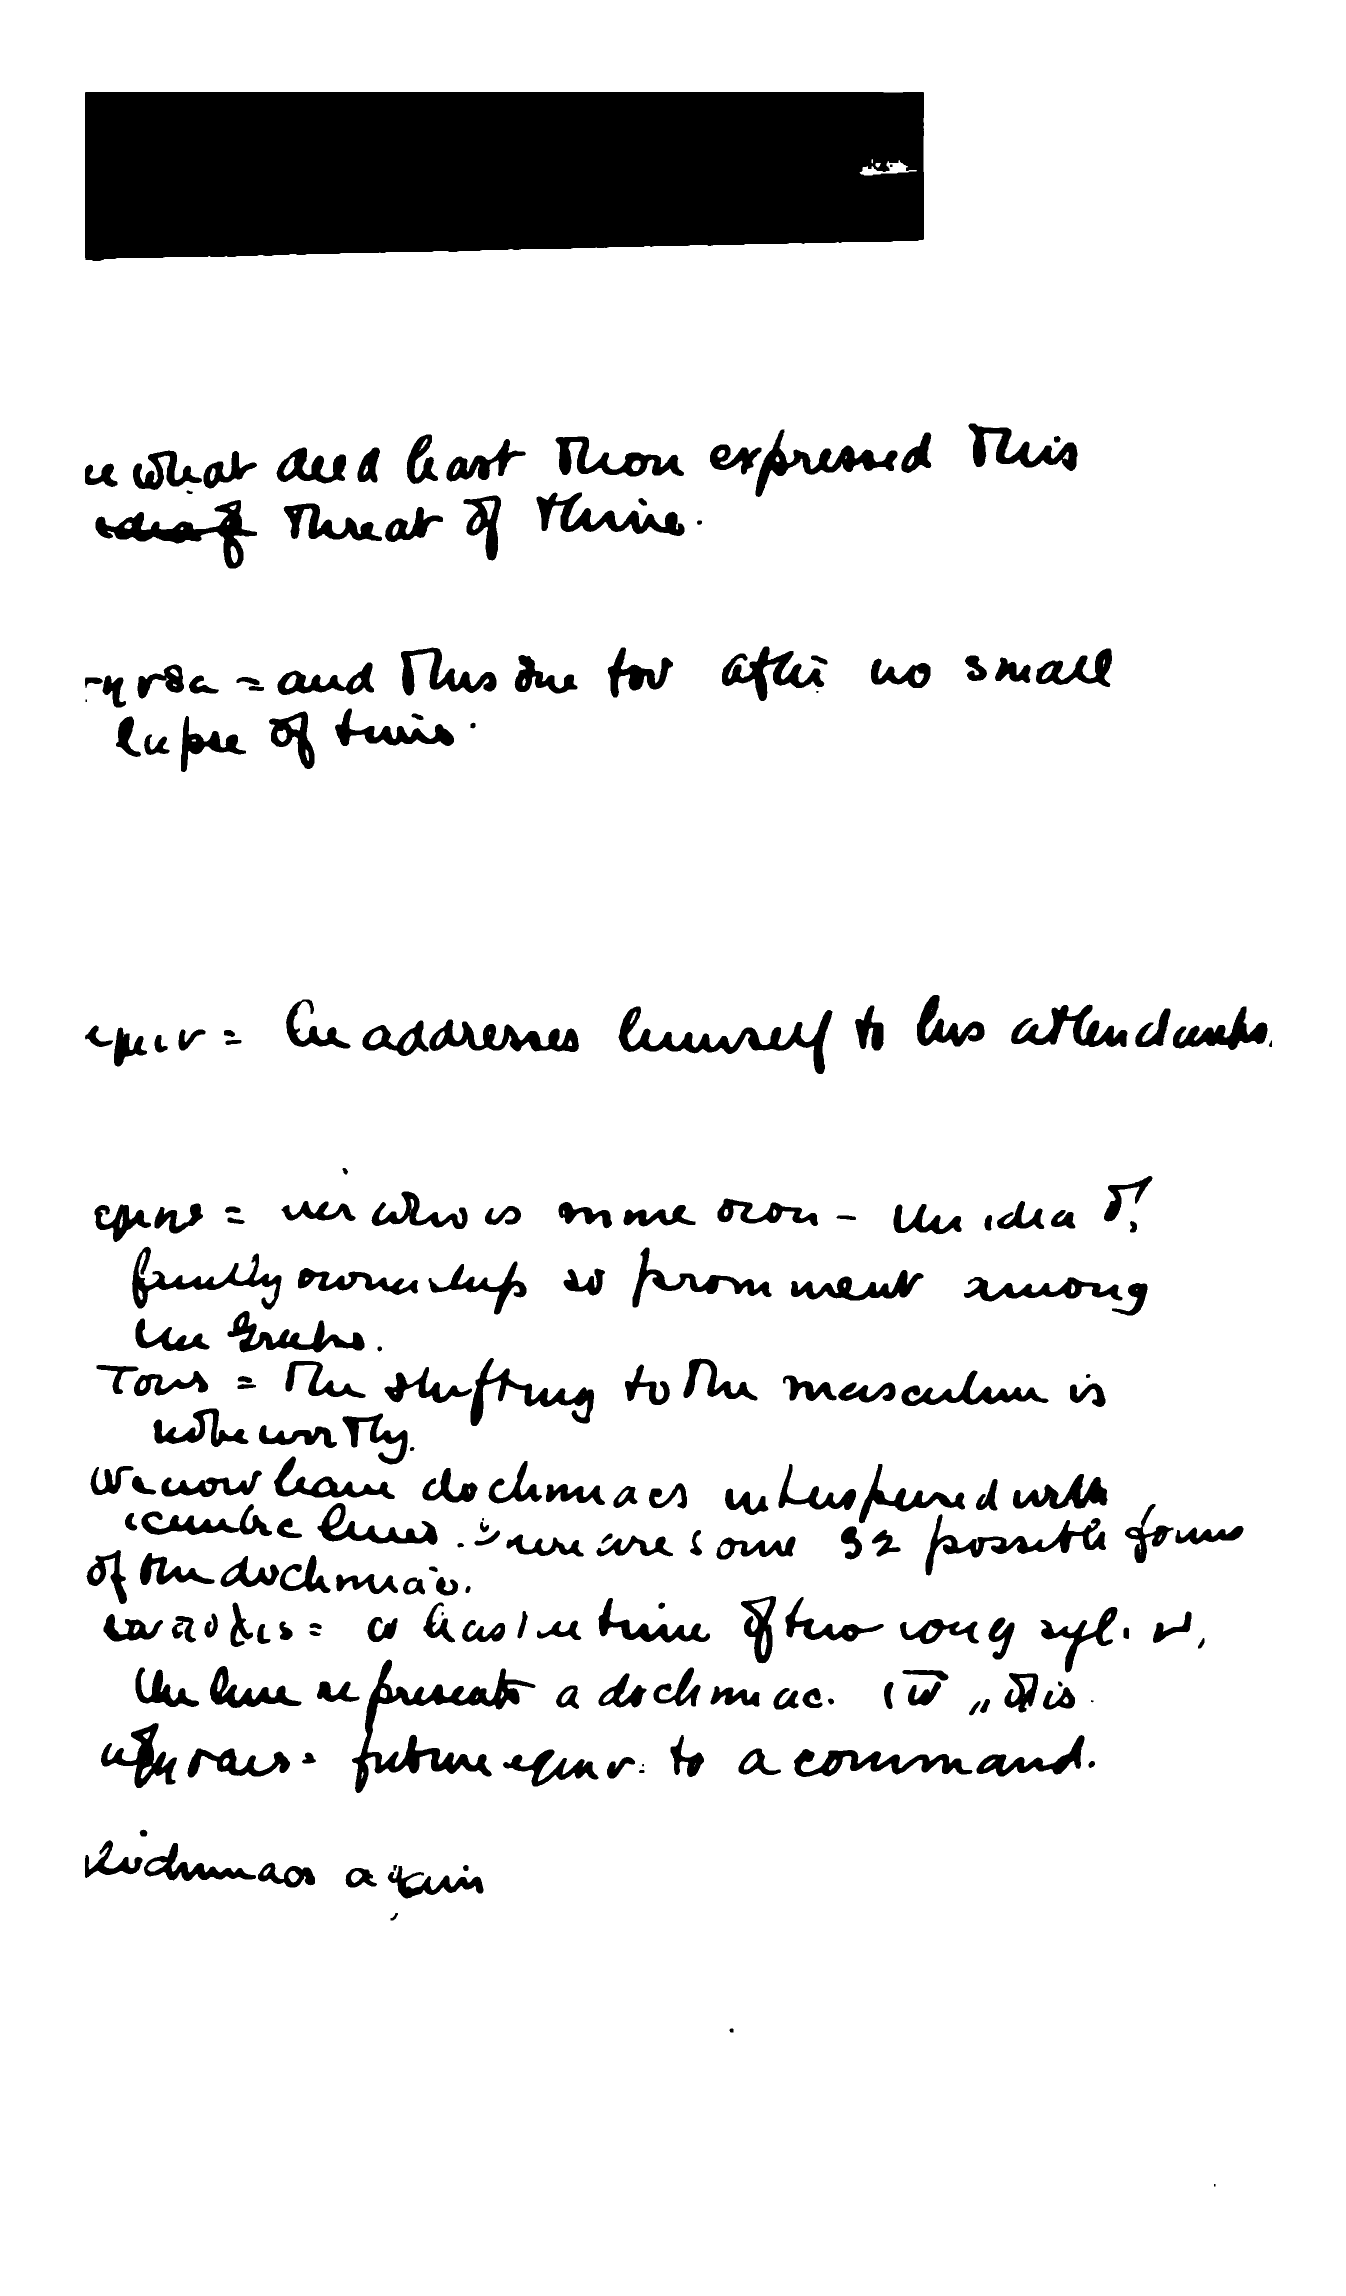 what deed hast thou expressed this
idea of threat of thine.
= and this one too after no small
lapse of time.
= he addresses himself to his attendants.
= who is mine own - the idea of
family ownership so prominent among
the Greeks.
= the shifting to the masculine is
noteworthy.
We now have dochmiacs interspersed with
iambic lines. There are some 32 possible forms
of the dochmiac.
= a has the time of two long syl.
the line represents a dochmiac. this
= future equiv. to a command.
Dochmiacs again